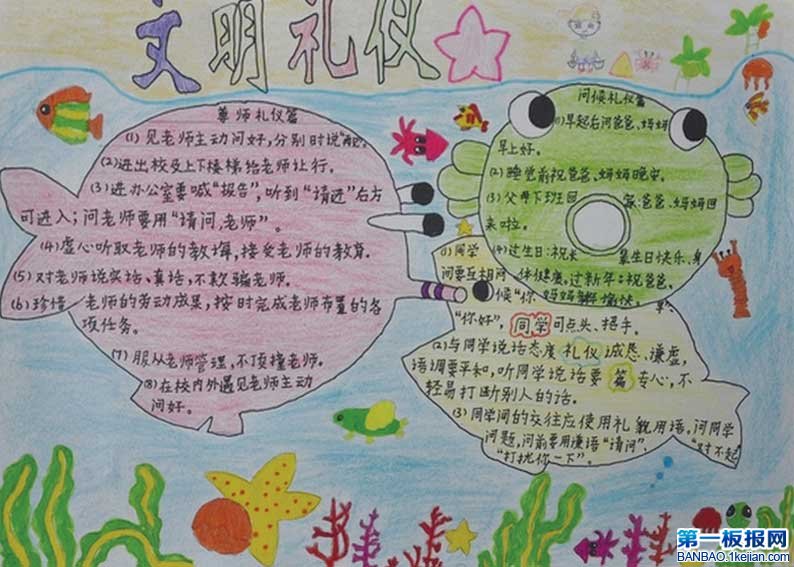 文明礼仪
尊师礼仪篇
(1) 见老师主动问好,分别时说“再见”。
(2)进出校及上下楼梯给老师让行。
(3) 进办公室要喊“报告”,听到“请进”后方
可进入;问老师要用“请问,老师”。
(4) 虚心听取老师的教诲,接受老师的教育.
(5) 对老师说实话、真话,不欺骗老师.
(6) 珍惜 老师的劳动成果,按时完成老师布置的各
项任务。
(7) 服从老师管理,不顶撞老师.
(8) 在校内外遇见老师主动
问好。
问候礼仪篇
(1)早起后问爸爸、妈妈
早上好。
(2) 睡觉前祝爸爸、妈妈晚安.
(3) 父母下班回 爸爸、妈妈回
来啦。
(4)过生日:祝长 生日快乐、身
体健康,过新年:祝爸爸、
妈妈 愉快。
同学礼仪篇
(1)同学
间要互相问
候“你
“你好”, 可点头、招手。
(2)与同学说话态度 诚恳、谦虚,
语调要平和,听同学说话要 专心,不
轻易打断别人的话。
(3) 同学间的交往应使用礼 貌用语,问同学
问题,问前要用谦语“请问”, “对不起”
“打扰你一下”。
第一板报网
BANBAO.1kejian.com